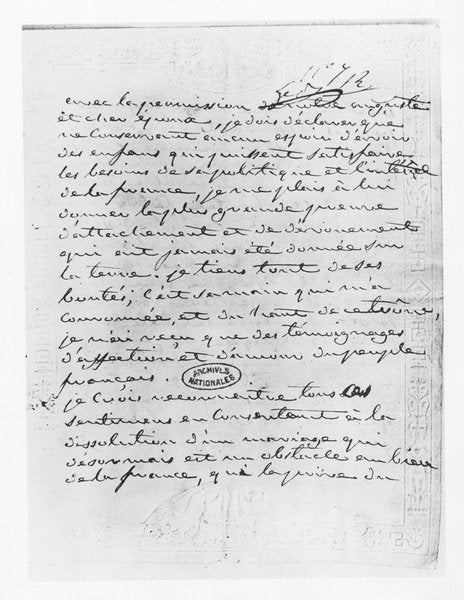 N° 7/2
avec la permission de notre auguste
et cher époux, je dois déclarer que
ne conservant aucun espoir d'avoir
des enfans qui puissent satisfaire
les besoins de sa politique et l'intérêt
de la france, je me plais à lui
donner la plus grande preuve
d'attachement et de dévouement
qui ait jamais été donnée sur
la terre. je tiens tout de ses
bontés; c'est sa main qui m'a
couronnée, et du haut de ce trône,
je n'ai reçu que des témoignages
d'affection et d'amour du peuple
français.
ARCHIVES
NATIONALES
je crois reconnaitre tous ces
sentimens en consentant à la
dissolution d'un mariage qui
désormais est un obstacle au bien
de la france, qui la prive du